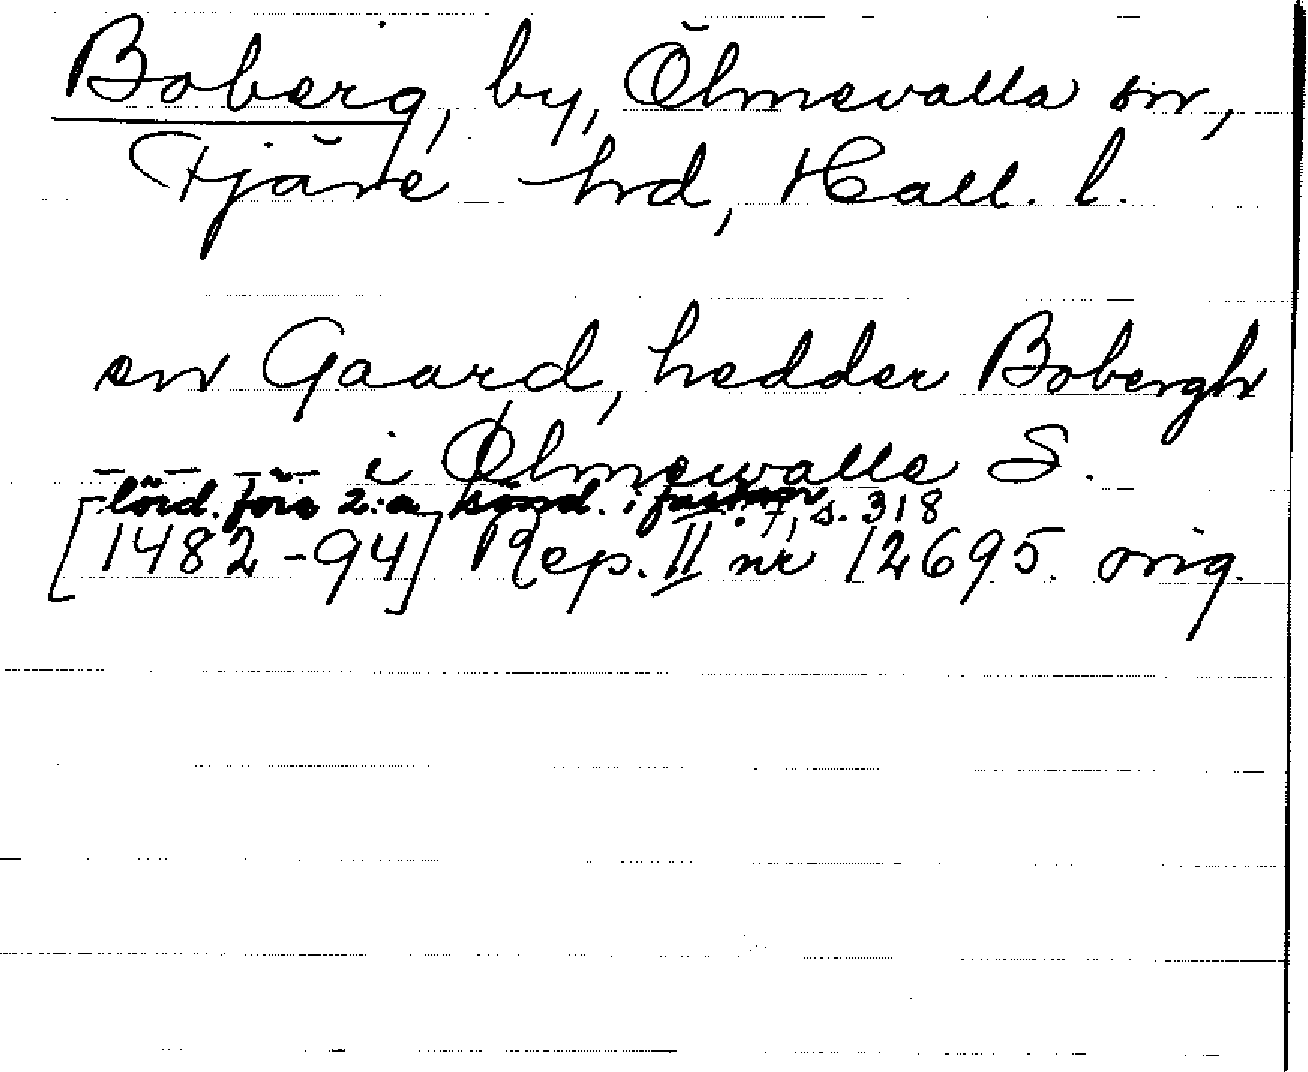 Boberg, by, Ölmevalla sn,
Fjäre hrd, Hall. l.
en Gaard, hedder Bobergh
i Ølmewalle S.
lörd. före 2:a sönd. i fastan
. 7, s. 318
[1482-94] Rep. II nr 12695. orig.